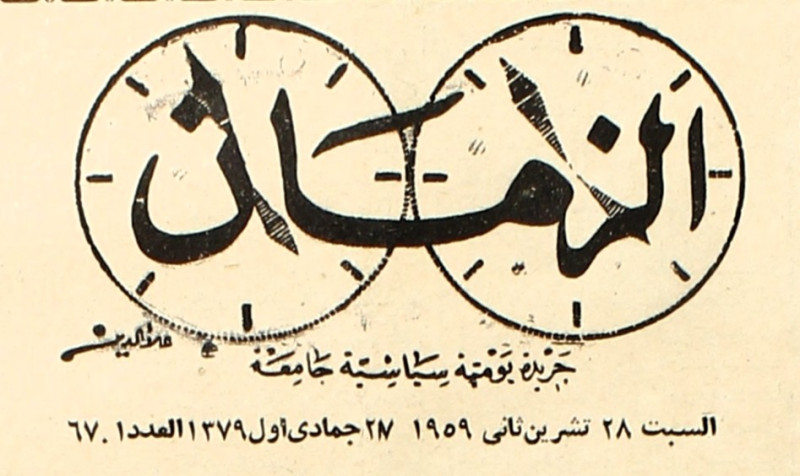 الزمان
علاء الدين
جريدة يومية سياسية جامعة
السبت ٢٨ تشرين ثاني ١٩٥٩ ٢٨ جمادى اول ١٣٧٩ العدد ٦٧٠١